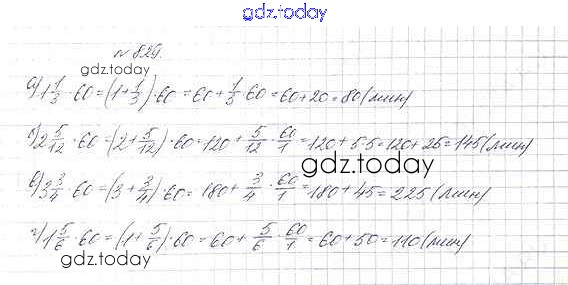 gdz.today
№ 829.
gdz.today
а) 1 1/3 · 60 = (1 + 1/3) · 60 = 60 + 1/3 · 60 = 60 + 20 = 80 (мин)
б) 2 5/12 · 60 = (2 + 5/12) · 60 = 120 + 5/12 · 60/1 = 120 + 5·5 = 120 + 25 = 145 (мин)
gdz.today
в) 3 3/4 · 60 = (3 + 3/4) · 60 = 180 + 3/4 · 60/1 = 180 + 45 = 225 (мин)
г) 1 5/6 · 60 = (1 + 5/6) · 60 = 60 + 5/6 · 60/1 = 60 + 50 = 110 (мин)
gdz.today